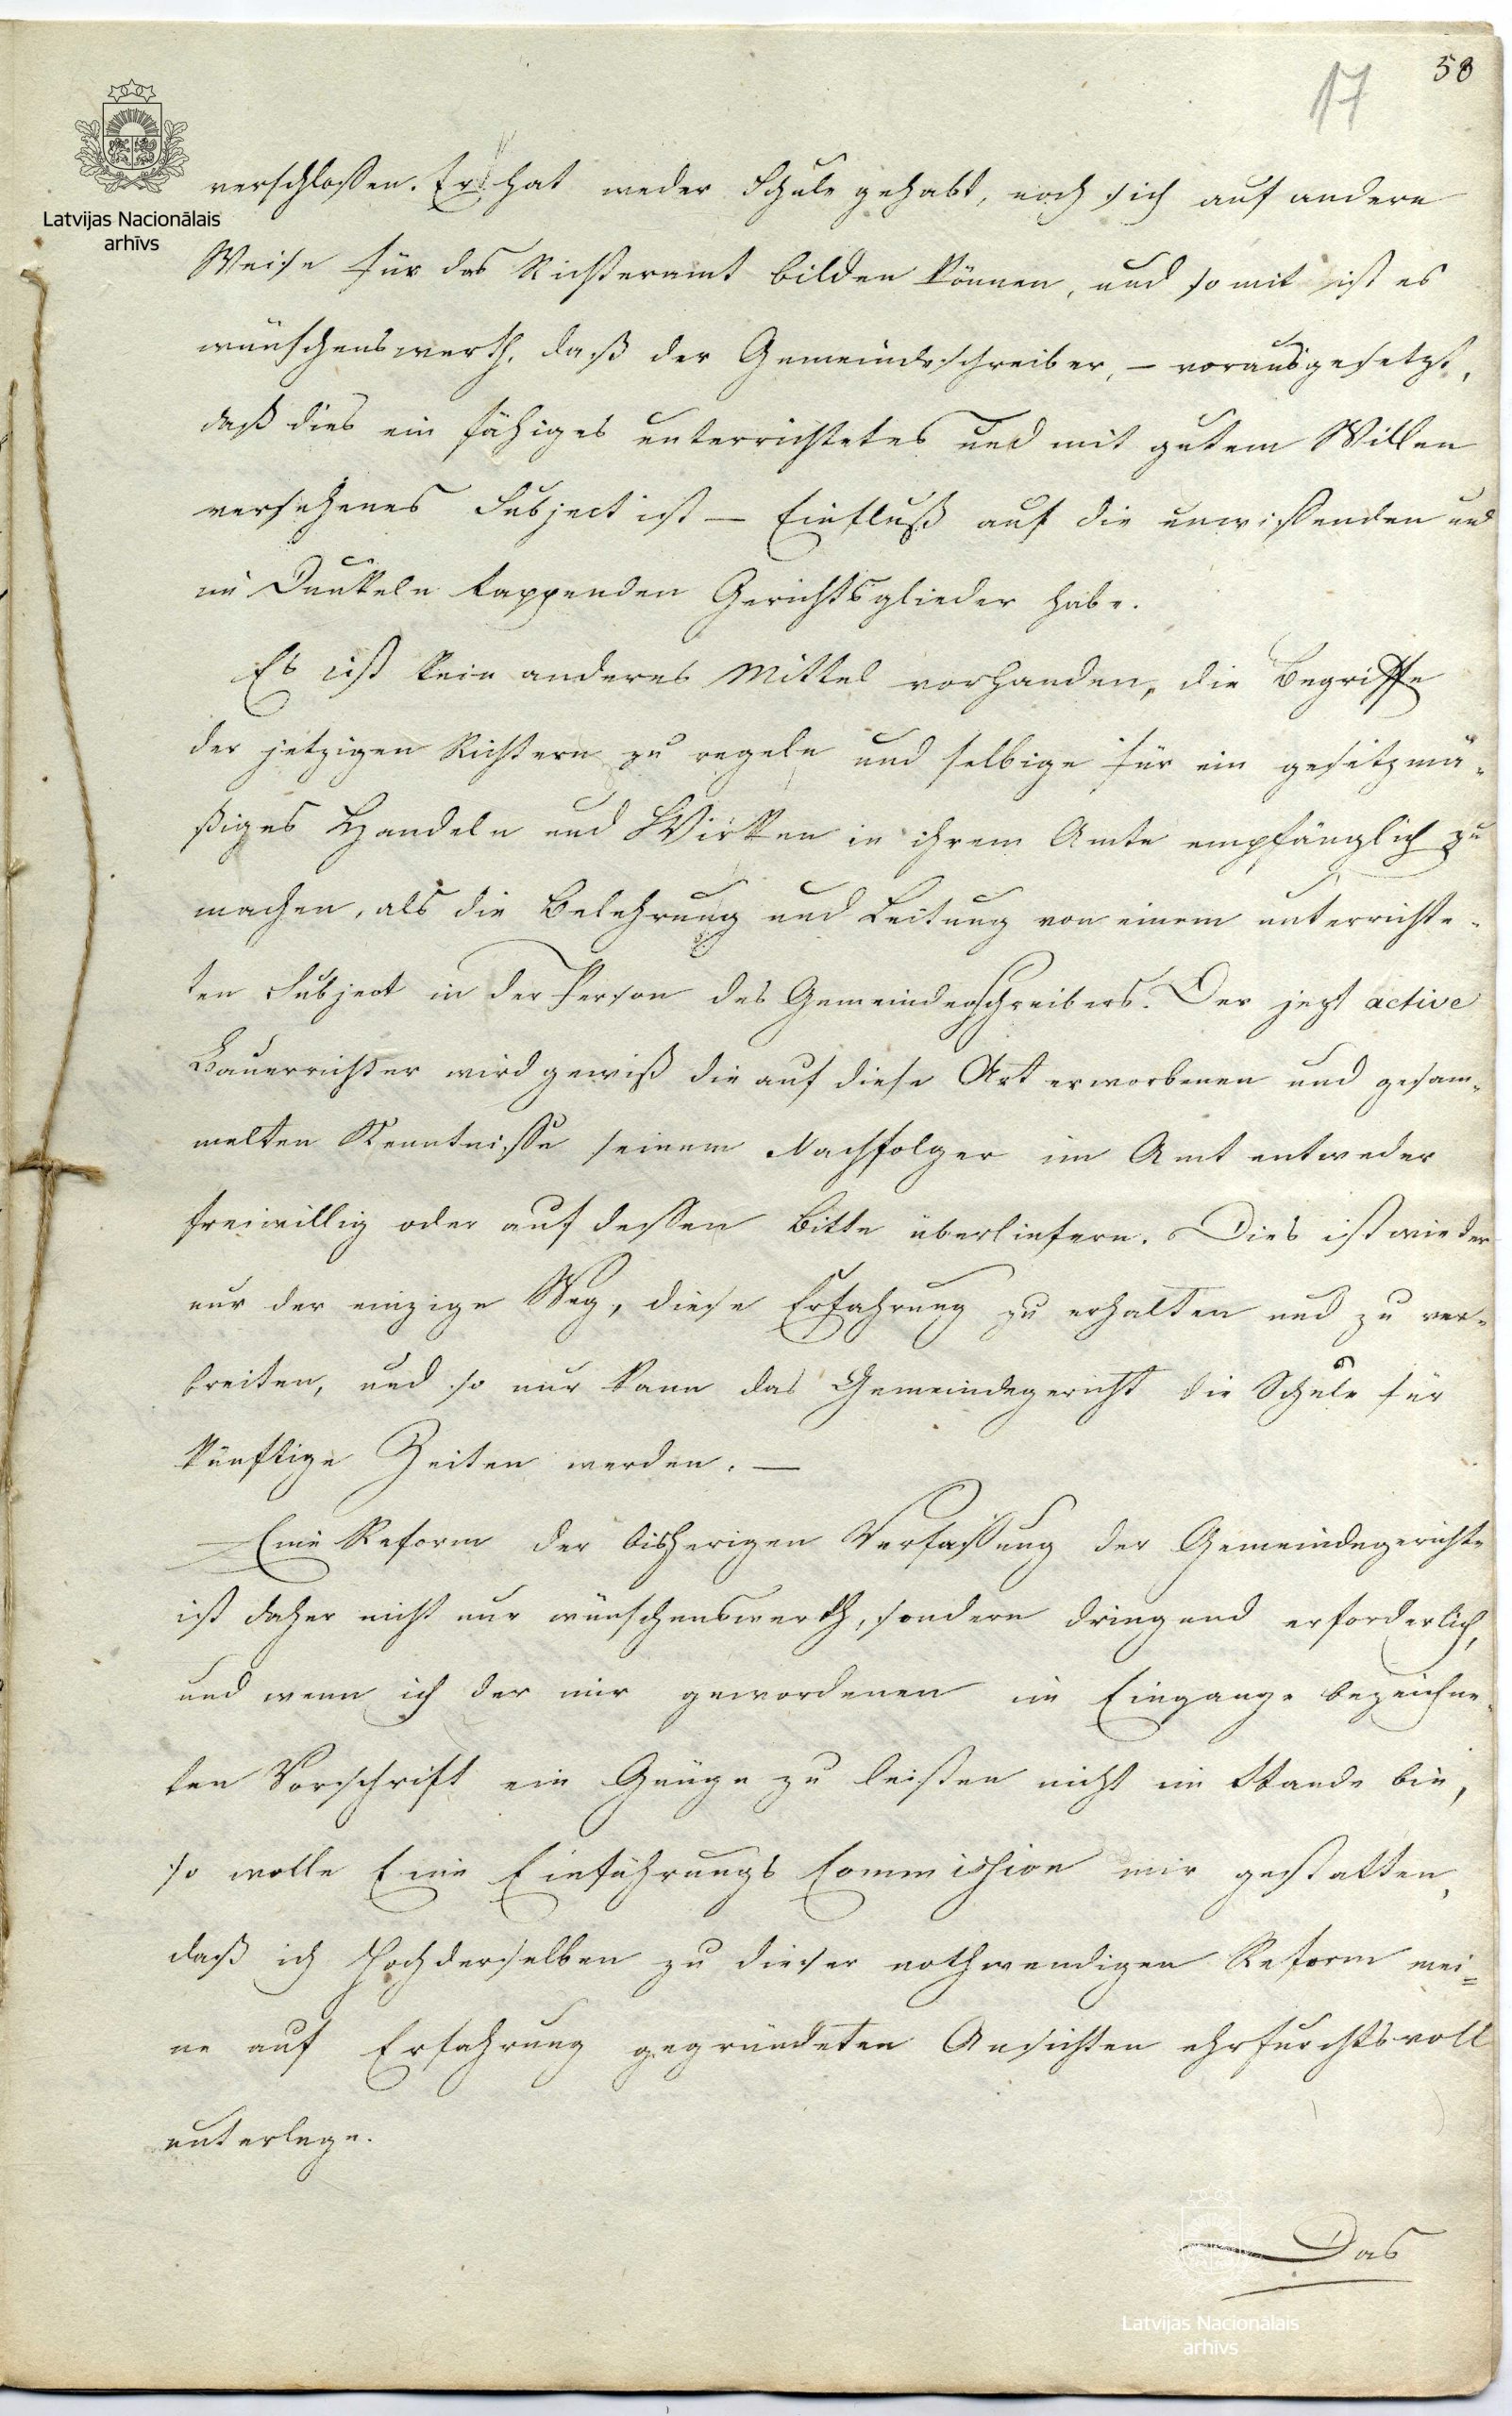 58
17
Latvijas Nacionālais
arhīvs
verschloßen. Er hat weder Schule gehabt, noch sich auf andere
Weise für das Richteramt bilden können, und somit ist es
wünschenswerth, daß der Gemeindeschreiber, – vorausgesetzt,
daß dies ein fähiges unterrichtetes und mit gutem Willen
versehenes Subject ist – Einfluß auf die unwißenden und
im Dunkeln tappenden Gerichtsglieder habe.
Es ist kein anderes Mittel vorhanden, die Begriffe
der jetzigen Richtern zu regeln und selbige für ein gesetzmä-
ßiges Handeln und Wirken in ihrem Amte empfänglich zu
machen, als die Belehrung und Leitung von einem unterrichte-
ten Subject in der Person des Gemeindeschreibers. Der jezt active
Bauerrichter wird gewiß die auf diese Art erworbenen und gesam-
melten Kenntniße seinem Nachfolger im Amt entweder
freiwillig oder auf deßen Bitte überliefern. Dies ist wieder
nur der einzige Weg, diese Erfahrung zu erhalten und zu ver-
breiten, und so nur kann das Gemeindegericht die Schule für
künftige Zeiten werden. –
Eine Reform der bisherigen Verfaßung der Gemeindegerichte
ist daher nicht nur wünschenswerth, sondern dringend erforderlich,
und wenn ich der mir gewordenen im Eingange bezeichne-
ten Vorschrift ein Genüge zu leisten nicht im Stande bin,
so wolle Eine Einführungs Commission mir gestatten,
daß ich Hochderselben zu dieser nothwendigen Reform mei=
ne auf Erfahrung gegründeten Ansichten ehrfurchtsvoll
unterlege.
Das
Latvijas Nacionālais
arhīvs